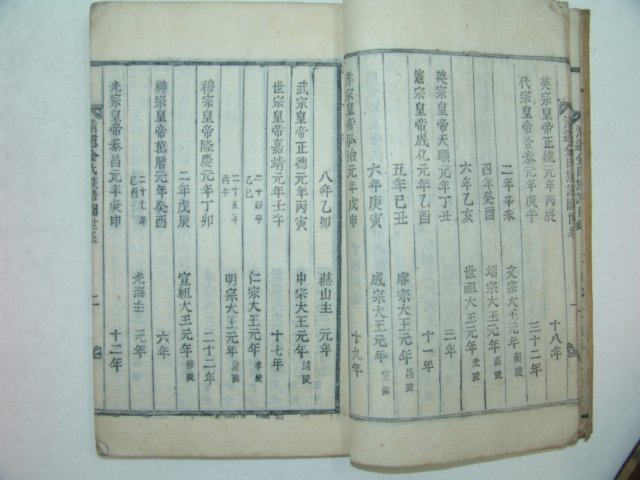 英宗皇帝正統元年丙辰 十八年
代宗皇帝景泰元年庚午 三十二年
二年辛未 文宗大王元年 顯陵
四年癸酉 端宗大王元年 莊陵
六年乙亥 世祖大王元年 光陵
英宗皇帝天順元年丁丑 三年
憲宗皇帝成化元年乙酉 十一年
五年己丑 睿宗大王元年 昌陵
六年庚寅 成宗大王元年 宣陵
孝宗皇帝弘治元年戊申 十九年
八年乙卯 燕山主 元年
武宗皇帝正德元年丙寅 中宗大王元年 靖陵
世宗皇帝嘉靖元年壬午 十七年
二十四年乙巳 仁宗大王元年 孝陵
二十五年丙午 明宗大王元年 康陵
穆宗皇帝隆慶元年丁卯 二十二年
二年戊辰 宣祖大王元年 穆陵
神宗皇帝萬曆元年癸酉 六年
二十七年己酉 光海主 元年
光宗皇帝泰昌元年庚申 十二年
淸道金氏族譜圖世系 二